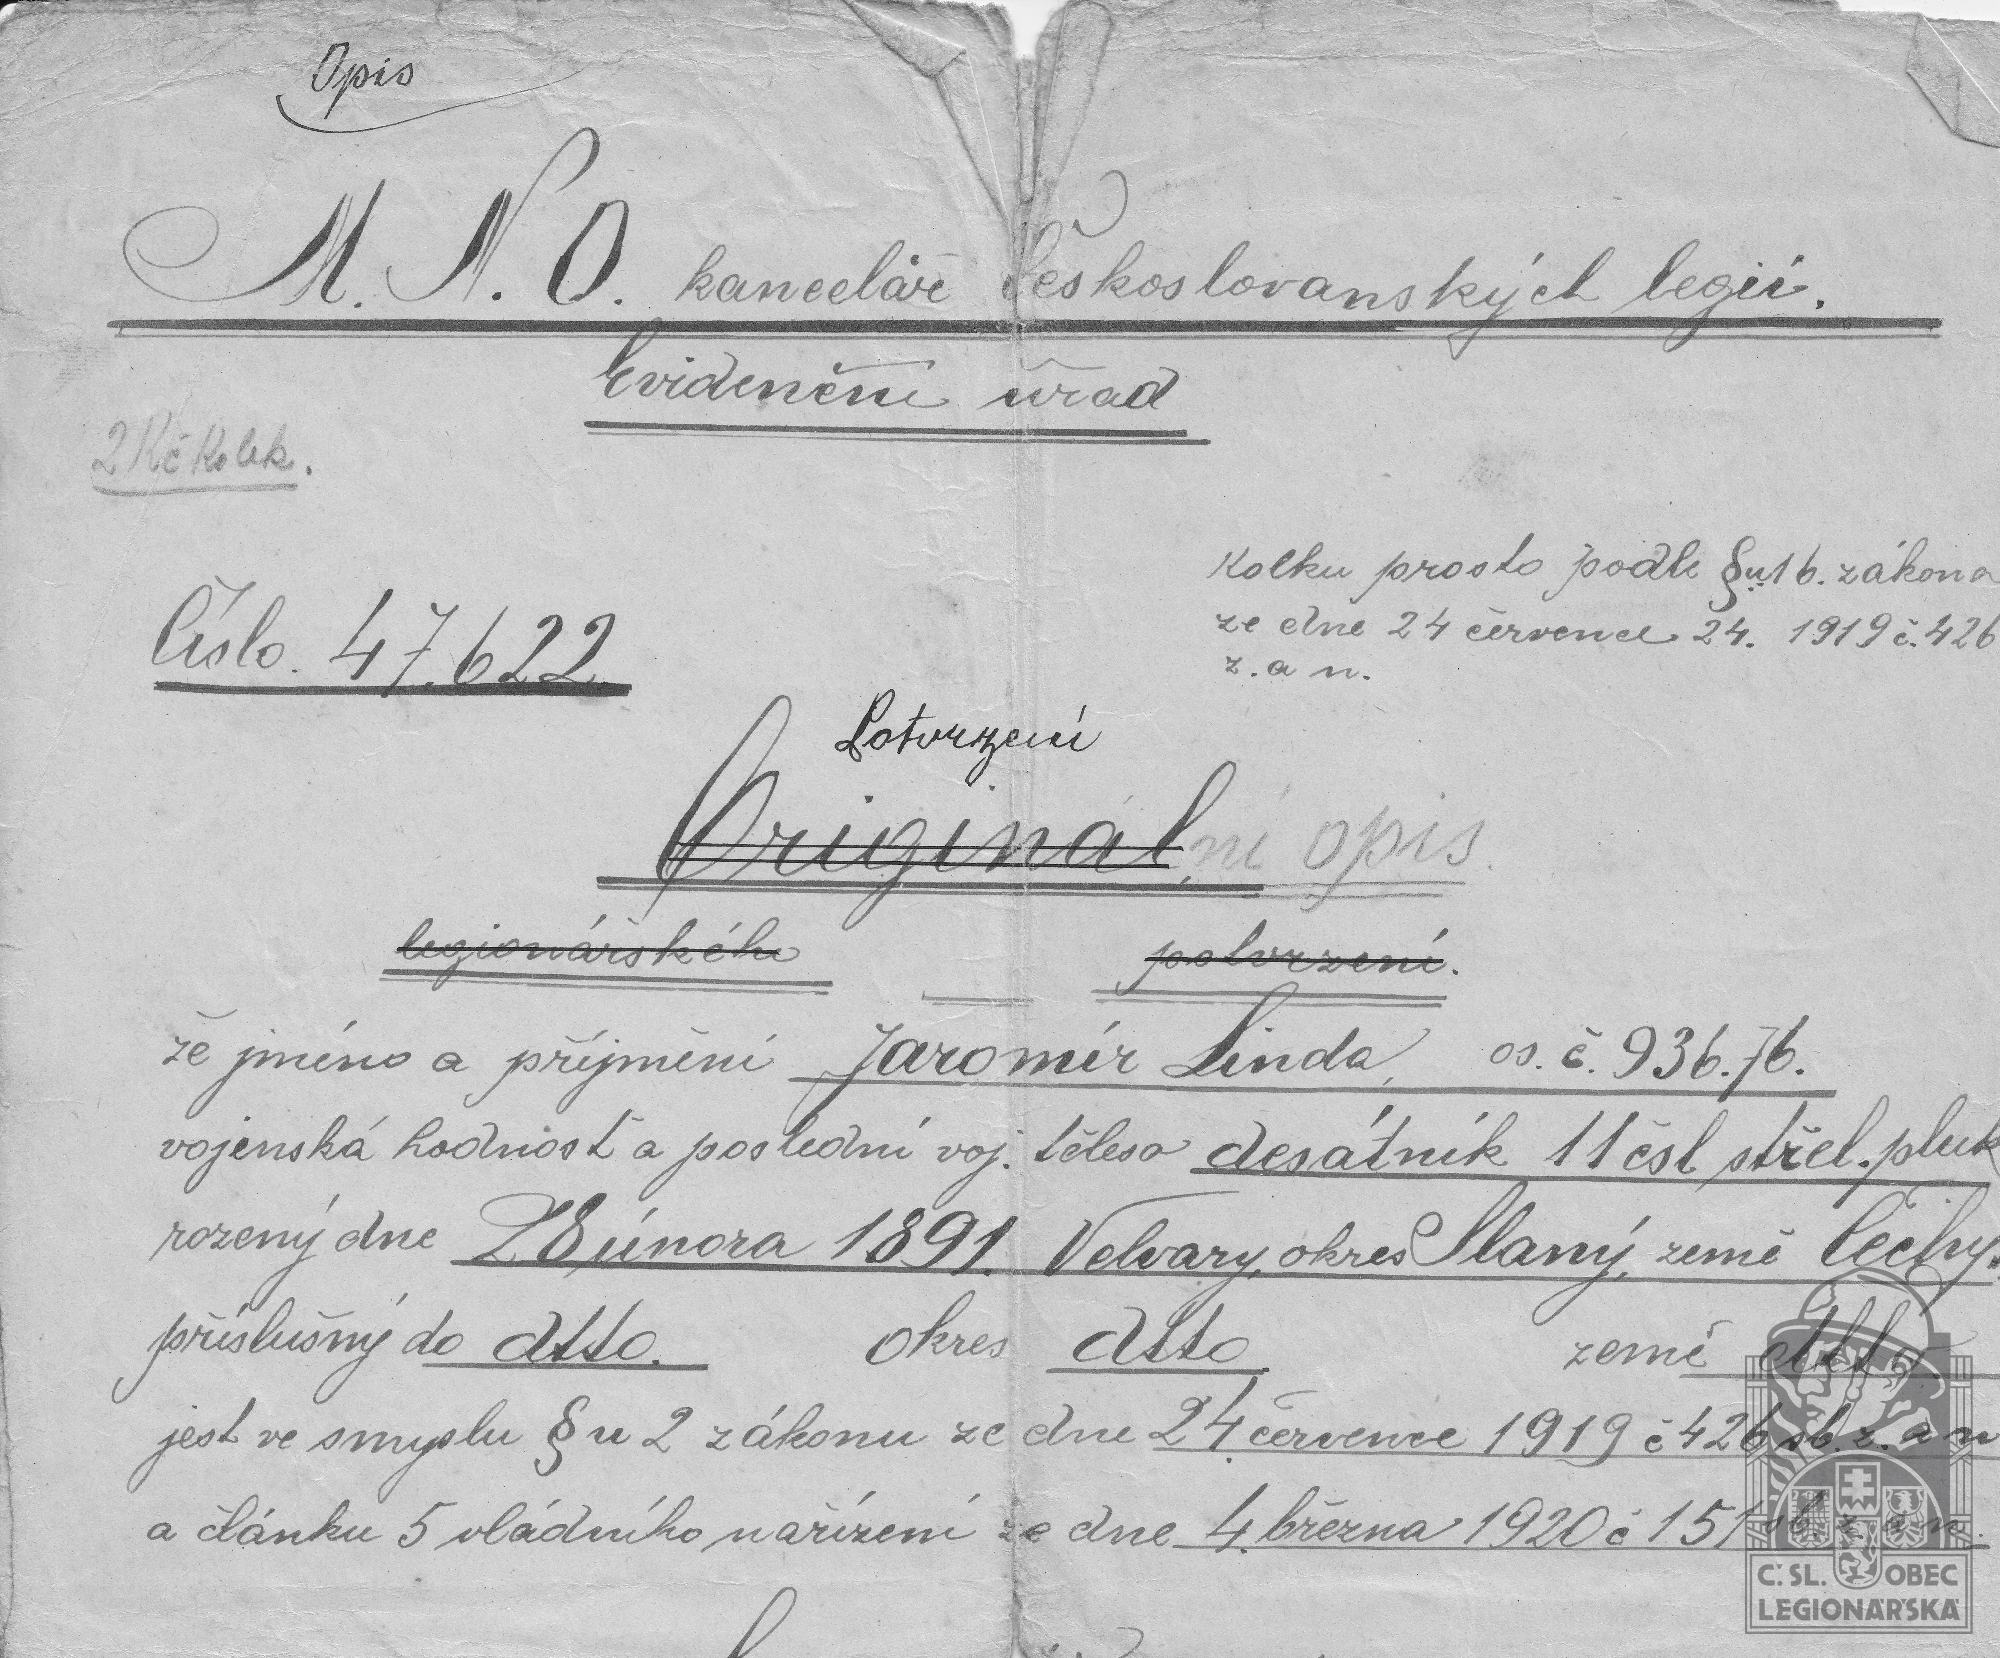 Opis
M. N. O. kanceláře Československých legií.
Evidenční úřad
2 Kč Kolek.
Kolku prosto podle §u 16. zákona
ze dne 24 července 24. 1919 č. 426
z. a n.
Číslo. 47.622.
Potvrzení
Originál,ní opis.
legionářského potvrzení.
že jméno a příjmění Jaromír Linda, os. č. 936.76.
vojenská hodnost a poslední voj. tělesa desátník 11 čsl střel. pluk
rozený dne 28 února 1891. Velvary, okres Slaný, země Čechy.
příslušný do dtto. okres dtto. země dtto
jest ve smyslu §u 2 zákonu ze dne 24 července 1919 č 426 sb. z. a n
a článku 5 vládního nařízení ze dne 4. března 1920 č 151 sb. z. a n.
Č. SL. OBEC
LEGIONÁŘSKÁ